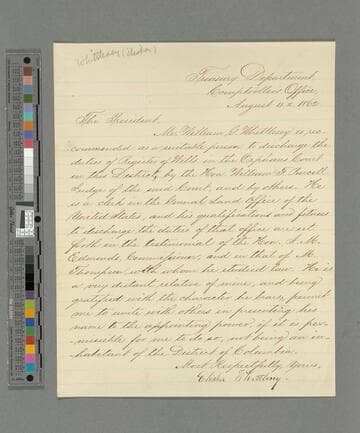 Whittlesey (Elisha)
Treasury Department,
Comptroller's Office,
August 22 1862
The President.
Mr. William C Whittlesey is re-
commended as a suitable person to discharge the
duties of Register of Wills in the Orphans Court
in this District, by the Hon. William F. Purcell
Judge of the said Court, and by others. He
is a clerk in the General Land Office of the
United States, and his qualifications and fitness
to discharge the duties of that office are set
forth in the testimonial of the Hon. J. M.
Edmunds, Commissioner, and in that of Mr
Thompson with whom he studied law. He is
a very distant relative of mine, and being
gratified with the character he bears, permit
me to unite with others in presenting his
name to the appointing power, if it is per-
missible for me to do so, not being an in-
habitant of the District of Columbia.
Most Respectfully Yours,
Elisha Whittlesey.